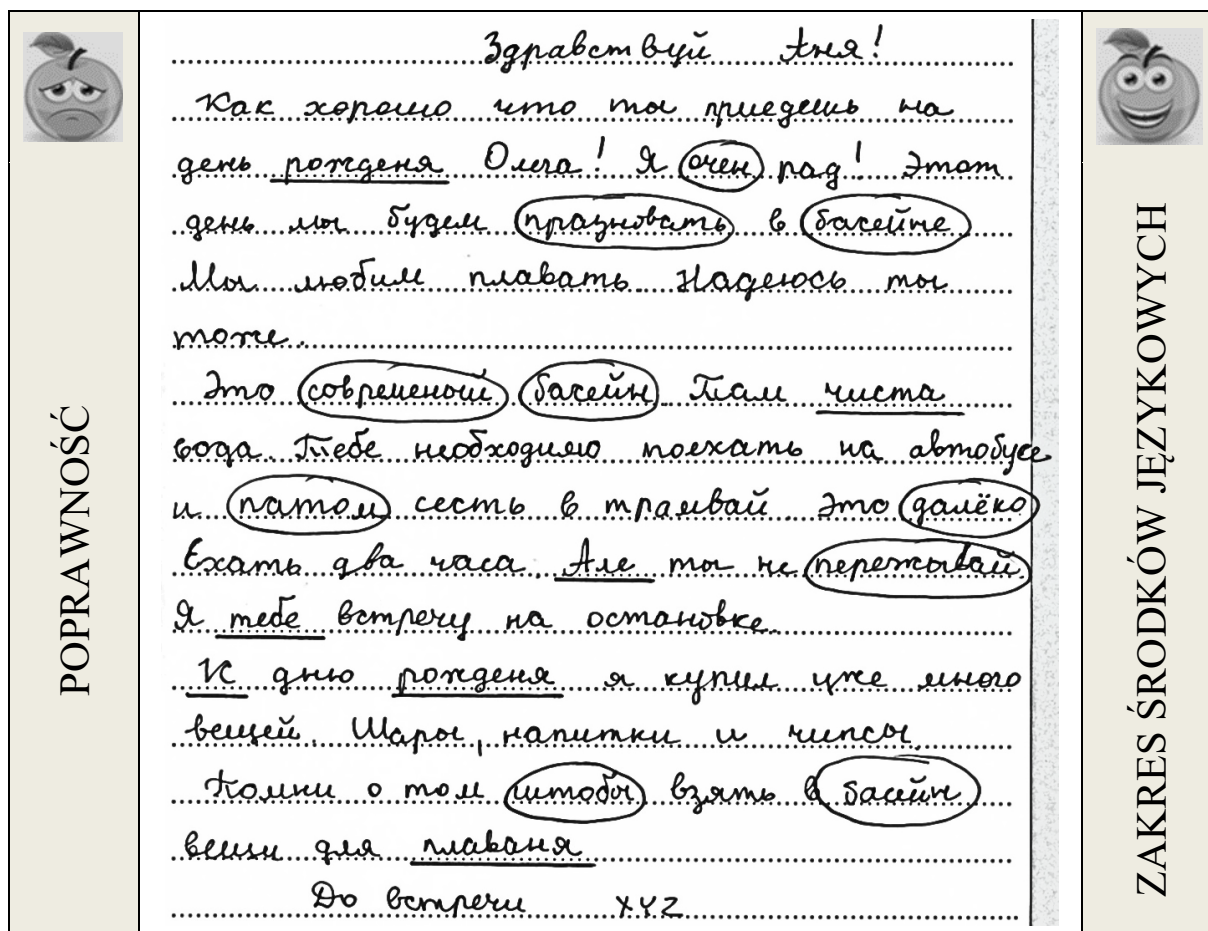 POPRAWNOŚĆ
Здравствуй Аня!
Как хорошо что ты приедешь на
день рожденя Олега! Я очен рад! Этот
день мы будем празновать в басейне
Мы любим плавать Надеюсь ты
тоже.
Это современой басейн Там чиста
вода Тебе необходимо поехать на автобусе
и патом сесть в трамвай Это далёко
Ехать два часа. Але ты не пережывай.
Я тебе встречу на остановке
К дню рожденя я купил уже много
вещей. Шары, напитки и чипсы
Помни о том штобы взять в басейн
вещи для плаваня
До встречи XYZ
ZAKRES ŚRODKÓW JĘZYKOWYCH